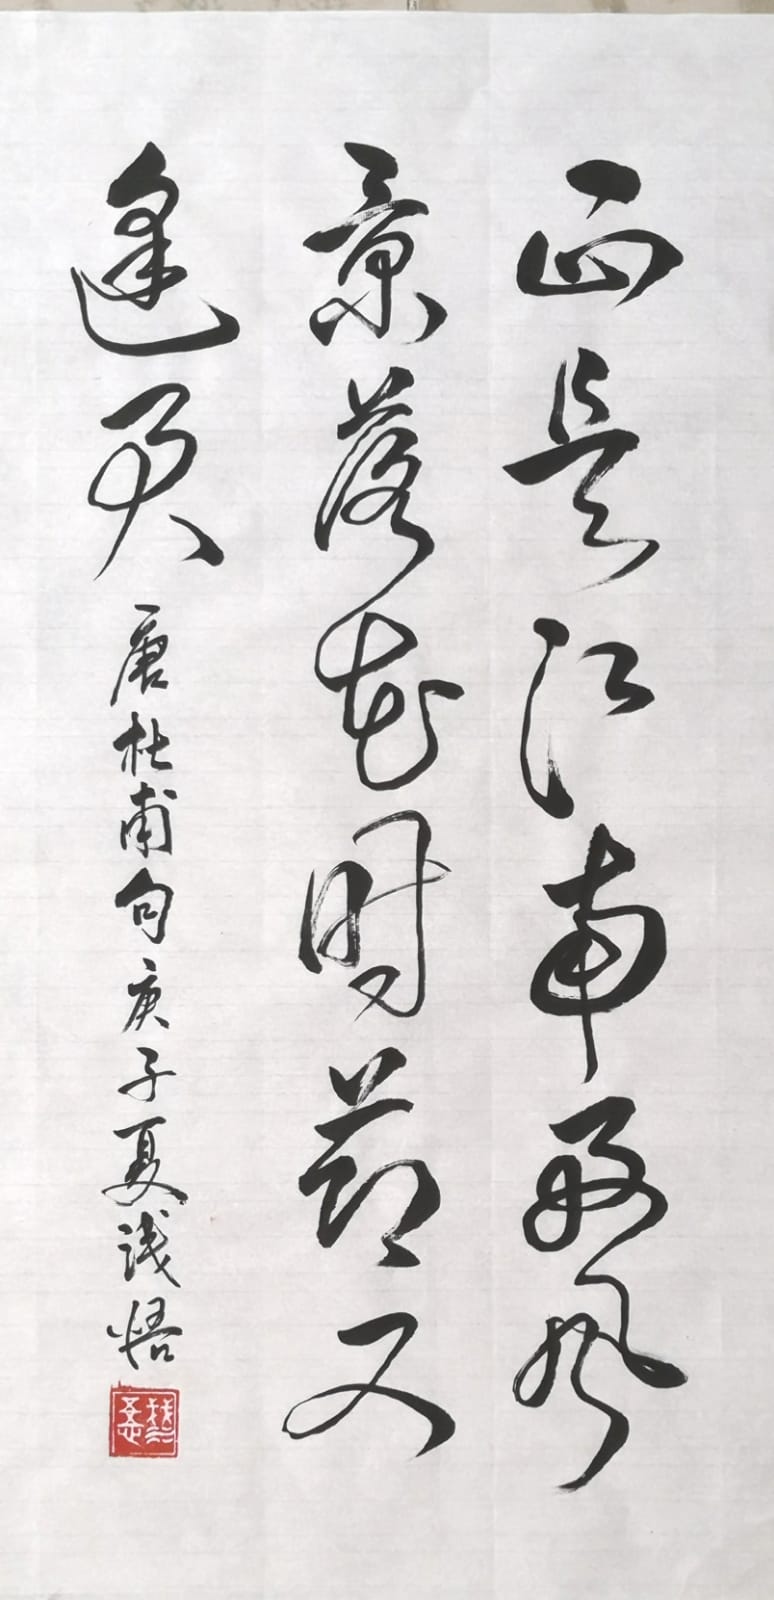 正是江南好风
景落花时节又
逢君
唐杜甫句庚子夏浅悟